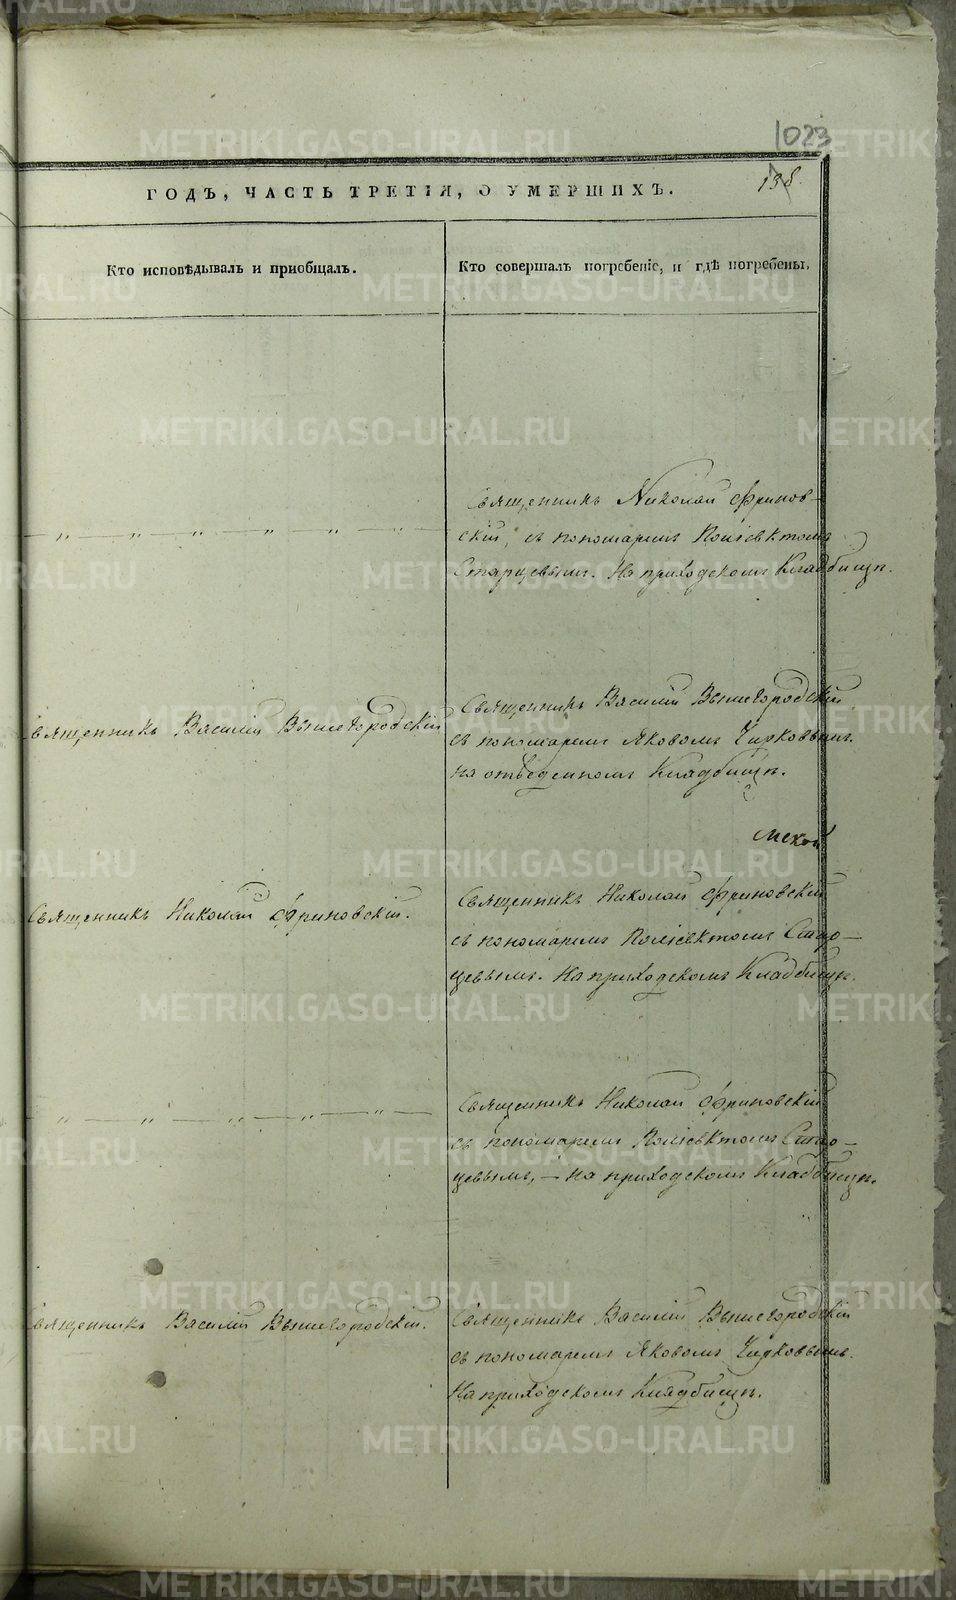 1023
138.
ГОДЪ, ЧАСТЬ ТРЕТІЯ, О УМЕРШИХЪ.
Кто исповѣдывалъ и приобщалъ.
Кто совершалъ погребеніе, и гдѣ погребены.
— „ — „ — „ — „ — „ —
Священникъ Николай Фринов-
скій, съ пономаремъ Поліевктомъ
Старцевымъ. На приходскомъ Кладбищѣ.
Священникъ Василій Вышегородскій
Священникъ Василій Вышегородскій
съ пономаремъ Яковомъ Чирковымъ.
на отведенномъ Кладбищѣ.
Священникъ Николай Фриновскій.
Священникъ Николай Фриновскій
съ пономаремъ Поліевктомъ Стар-
цевымъ. На приходскомъ Кладбищѣ.
— „ — „ — „ — „ — „ —
Священникъ Николай Фриновскій
съ пономаремъ Поліевктомъ Стар-
цевымъ, — на приходскомъ Кладбищѣ.
Священникъ Василій Вышегородскій.
Священникъ Василій Вышегородскій
съ пономаремъ Яковомъ Чирковымъ.
На приходскомъ Кладбищѣ.
METRIKI.GASO-URAL.RU